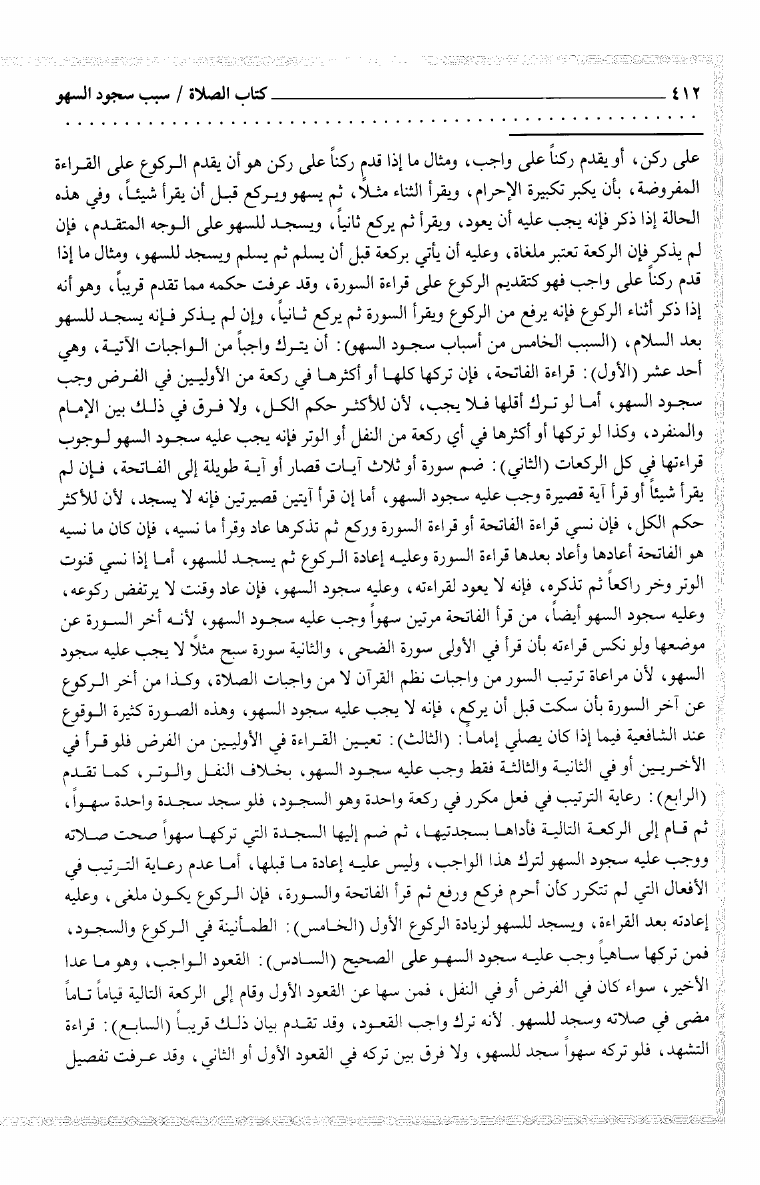 ٤١٢ كتاب الصلاة / سبب سجود السهو
على ركن، أو يقدم ركناً على واجب، ومثال ما إذا قدم ركناً على ركن هو أن يقدم الركوع على القراءة
المفروضة، بأن يكبر تكبيرة الإحرام، ويقرأ الثناء مثلاً، ثم يسهو ويركع قبل أن يقرأ شيئاً، وفي هذه
الحالة إذا ذكر فإنه يجب عليه أن يعود، ويقرأ ثم يركع ثانياً، ويسجد للسهو على الوجه المتقدم، فإن
لم يذكر فإن الركعة تعتبر ملغاة، وعليه أن يأتي بركعة قبل أن يسلم ثم يسلم ويسجد للسهو، ومثال ما إذا
قدم ركناً على واجب فهو كتقديم الركوع على قراءة السورة، وقد عرفت حكمه مما تقدم قريباً، وهو أنه
إذا ذكر أثناء الركوع فإنه يرفع من الركوع ويقرأ السورة ثم يركع ثانياً، وإن لم يذكر فإنه يسجد للسهو
بعد السلام، (السبب الخامس من أسباب سجود السهو): أن يترك واجباً من الواجبات الآتية، وهي
أحد عشر (الأول): قراءة الفاتحة، فإن تركها كلها أو أكثرها في ركعة من الأوليين في الفرض وجب
سجود السهو، أما لو ترك أقلها فلا يجب، لأن للأكثر حكم الكل، ولا فرق في ذلك بين الإمام
والمنفرد، وكذا لو تركها أو أكثرها في أي ركعة من النفل أو الوتر فإنه يجب عليه سجود السهو لوجوب
قراءتها في كل الركعات (الثاني): ضم سورة أو ثلاث آيات قصار أو آية طويلة إلى الفاتحة، فإن لم
يقرأ شيئاً أو قرأ آية قصيرة وجب عليه سجود السهو، أما إن قرأ آيتين قصيرتين فإنه لا يسجد، لأن للأكثر
حكم الكل، فإن نسي قراءة الفاتحة أو قراءة السورة وركع ثم تذكرها عاد وقرأ ما نسيه، فإن كان ما نسيه
هو الفاتحة أعادها وأعاد بعدها قراءة السورة وعليه إعادة الركوع ثم يسجد للسهو، أما إذا نسي قنوت
الوتر وخر راكعاً ثم تذكره، فإنه لا يعود لقراءته، وعليه سجود السهو، فإن عاد وقنت لا يرتفض ركوعه،
وعليه سجود السهو أيضاً، من قرأ الفاتحة مرتين سهواً وجب عليه سجود السهو، لأنه أخر السورة عن
موضعها ولو نكس قراءته بأن قرأ في الأولى سورة الضحى، والثانية سورة سبح مثلاً لا يجب عليه سجود
السهو، لأن مراعاة ترتيب السور من واجبات نظم القرآن لا من واجبات الصلاة، وكذا من أخر الركوع
عن آخر السورة بأن سكت قبل أن يركع، فإنه لا يجب عليه سجود السهو، وهذه الصورة كثيرة الوقوع
عند الشافعية فيما إذا كان يصلي إماماً: (الثالث): تعيين القراءة في الأوليين من الفرض فلو قرأ في
الأخريين أو في الثانية والثالثة فقط وجب عليه سجود السهو، بخلاف النفل والوتر، كما تقدم
(الرابع): رعاية الترتيب في فعل مكرر في ركعة واحدة وهو السجود، فلو سجد سجدة واحدة سهواً،
ثم قام إلى الركعة التالية فأداها بسجدتيها، ثم ضم إليها السجدة التي تركها سهواً صحت صلاته
ووجب عليه سجود السهو لترك هذا الواجب، وليس عليه إعادة ما قبلها، أما عدم رعاية الترتيب في
الأفعال التي لم تتكرر كأن أحرم فركع ورفع ثم قرأ الفاتحة والسورة، فإن الركوع يكون ملغى، وعليه
إعادته بعد القراءة، ويسجد للسهو لزيادة الركوع الأول (الخامس): الطمأنينة في الركوع والسجود،
فمن تركها ساهياً وجب عليه سجود السهو على الصحيح (السادس): القعود الواجب، وهو ما عدا
الأخير، سواء كان في الفرض أو في النفل، فمن سها عن القعود الأول وقام إلى الركعة التالية قياماً تاماً
مضى في صلاته وسجد للسهو. لأنه ترك واجب القعود، وقد تقدم بيان ذلك قريباً (السابع): قراءة
التشهد، فلو تركه سهواً سجد للسهو، ولا فرق بين تركه في القعود الأول أو الثاني، وقد عرفت تفصيل